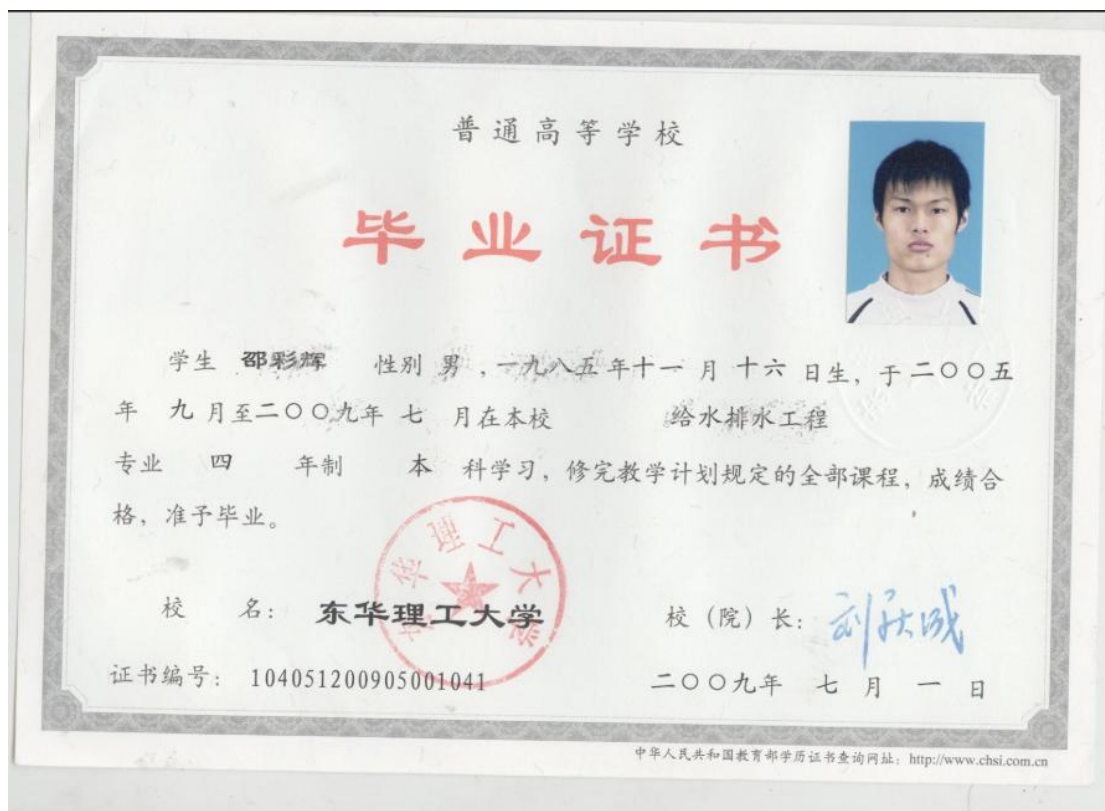 普通高等学校
毕业证书
学生 邵彩辉 性别 男 , 一九八五年十一月十六日生, 于二〇〇五
年九月至二〇〇九年七月在本校 给水排水工程
专业 四 年制 本 科学习, 修完教学计划规定的全部课程, 成绩合
格, 准予毕业。
东华理工大学
校 名: 东华理工大学 校（院）长:
证书编号: 104051200905001041 二〇〇九年 七 月 一 日
中华人民共和国教育部学历证书查询网址: http://www.chsi.com.cn